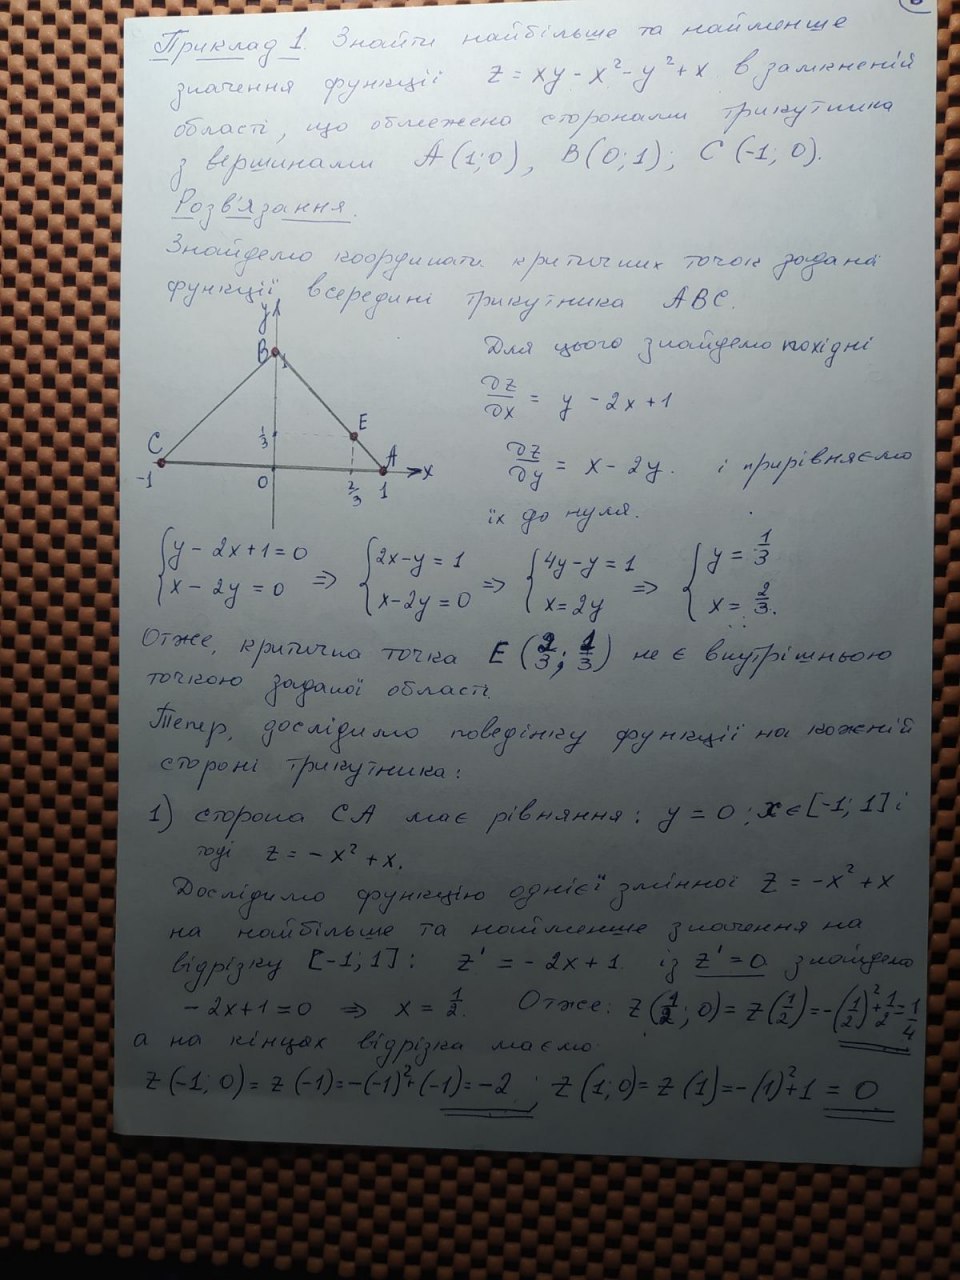 Приклад 1. Знайти найбільше та найменше
значення функції z = xy - x² - y² + x в замкненій
області, що обмежена сторонами трикутника
з вершинами A(1;0), B(0;1); C(-1;0).
Розв'язання.
Знайдемо координати критичних точок задана
функції всередині трикутника ABC.
y
B 1
C -1
1/3
E
A
x
0
2/3
1
Для цього знайдемо похідні
∂z/∂x = y - 2x + 1
∂z/∂y = x - 2y. і прирівняємо
їх до нуля.
{y - 2x + 1 = 0 ; x - 2y = 0 ⇒ {2x - y = 1 ; x - 2y = 0 ⇒ {4y - y = 1 ; x = 2y ⇒ {y = 1/3 ; x = 2/3.
Отже, критична точка E(2/3; 1/3) не є внутрішньою
точкою заданої області.
Тепер, дослідимо поведінку функції на кожній
стороні трикутника:
1) сторона CA має рівняння: y = 0; x ∈ [-1; 1] і
тоді z = -x² + x.
Дослідимо функцію однієї змінної z = -x² + x
на найбільше та найменше значення на
відрізку [-1; 1]: z' = -2x + 1 із z' = 0 знайдемо
-2x + 1 = 0 ⇒ x = 1/2. Отже: z(1/2; 0) = z(1/2) = -(1/2)² + 1/2 = 1/4
а на кінцях відрізка маємо
z(-1; 0) = z(-1) = -(-1)² + (-1) = -2 ; z(1; 0) = z(1) = -(1)² + 1 = 0